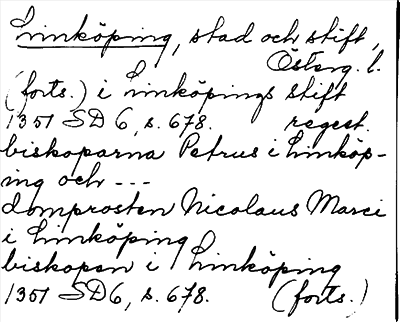 Linköping, stad och stift,
Österg. l.
(forts.) i Linköpings stift
1351 SD 6, s. 678. regest.
biskoparna Petrus i Linköp-
ing och ---
domprosten Nicolaus Marci
i Linköping
biskopen i Linköping
1351 SD 6, s. 678. (forts.)